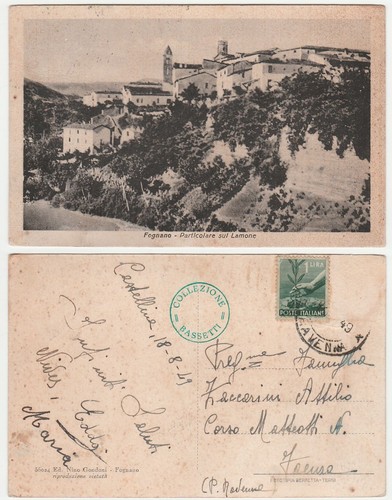 Fognano - Particolare sul Lamone
Castellina 18-8-49
Infiniti Saluti
Eddi
Nives,
Maria
COLLEZIONE
BASSETTI
1 LIRE
POSTE ITALIANE
49
RAVENNA
Pregma Famiglia
Zaccarini Attilio
Corso Matteotti N.
Faenza
(P. Ravenna
Ed. Nino Gaudoni - Fognano
riproduzione vietata